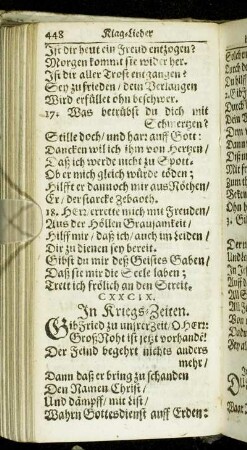 448 Klag-Lieder
Ist dir heut ein Freud entzogen?
Morgen kommt sie wider her.
Ist dir aller Trost entgangen?
Sey zu frieden/ dein Verlangen
Wird erfüllet ohn beschwer.
17. Was betrübst du dich mit
Schmertzen?
Stille doch/ und harr auff Gott:
Dancken wil ich ihm von Hertzen/
Daß ich werde nicht zu Spott.
Ob er mich gleich würde töden;
Hilfft er dannoch mir aus Nöthen/
Er/ der starcke Zebaoth.
18. HErr errette mich mit Freuden/
Aus der Höllen Grausamkeit/
Hilff mir/ daß ich/ auch im Leiden/
Dir zu dienen sey bereit.
Gibst du mir deß Geistes Gaben/
Daß sie mir die Seele laben;
Trett ich frölich an den Streit.
CXXCIX.
In Kriegs-Zeiten.
Gib Fried zu unsrer Zeit/ O HErr:
Groß Noht ist jetzt vorhandē!
Der Feind begehrt nichts anders
mehr/
Dann daß er bring zu schanden
Den Namen Christ/
Und dämpff/ mit List/
Wahrn Gottesdienst auff Erden: